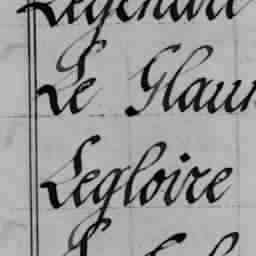 Legendre
Le Glaun
Legloire